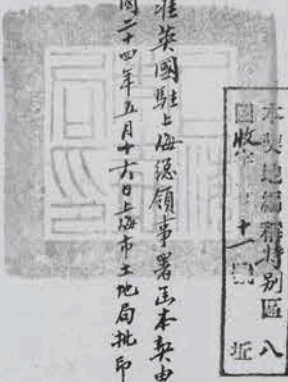 本契地編釋特別區八
圖收字十一號坵
准英國駐上海總領事署函本契由
國二十四年五月十六日上海市土地局批印